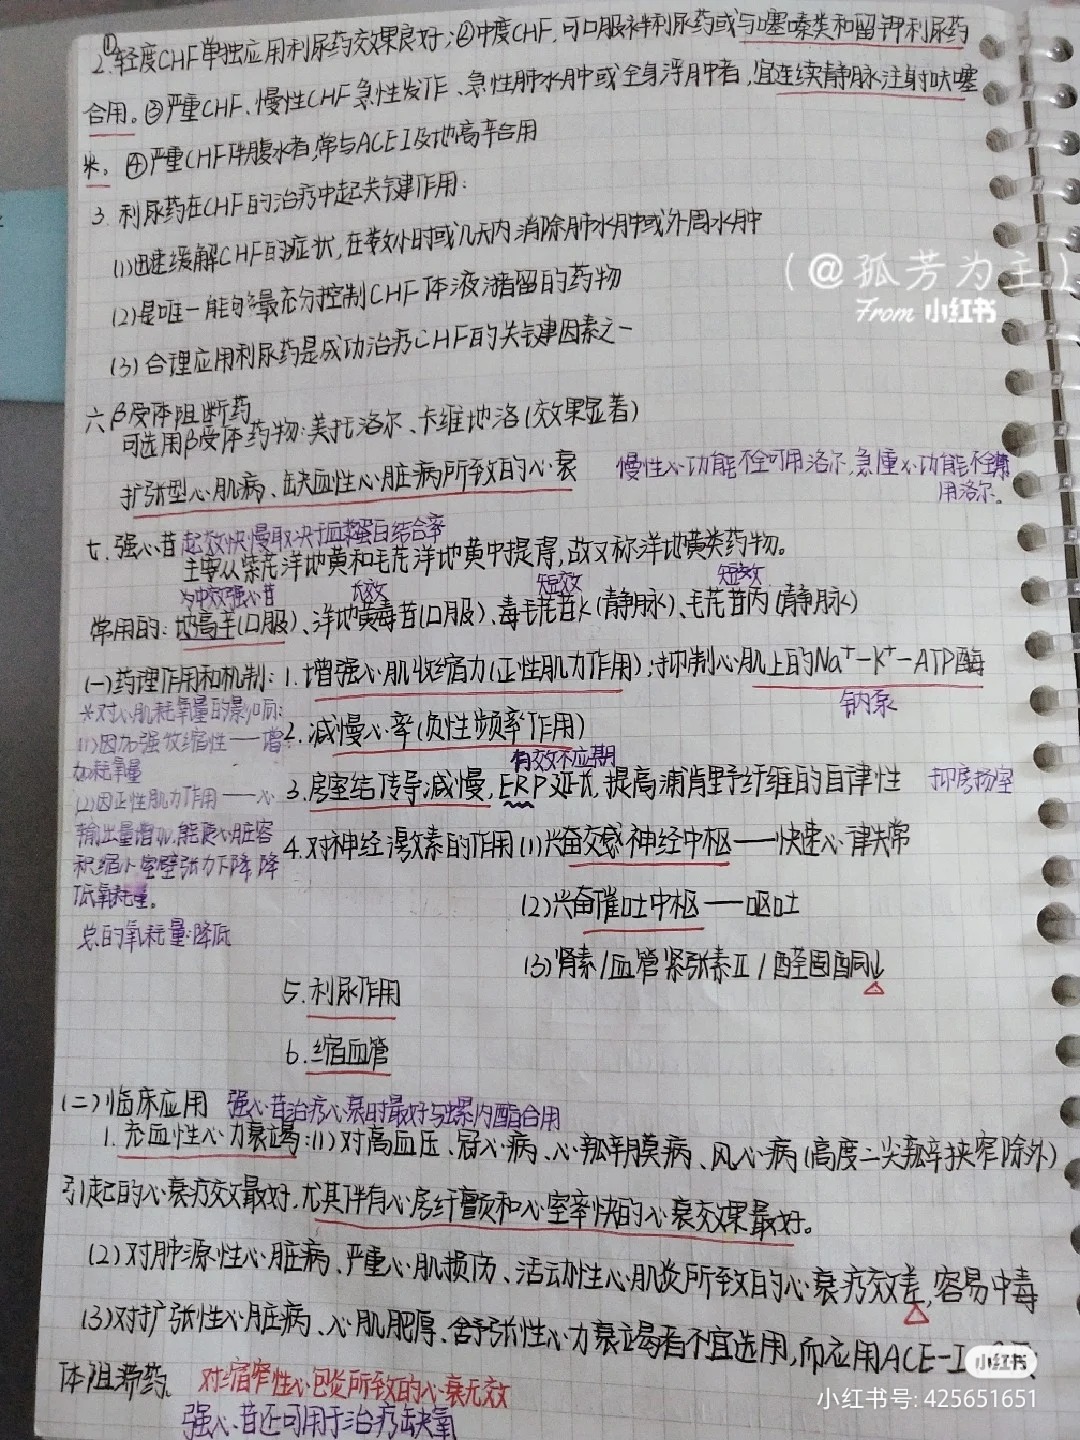 2.①轻度CHF单独应用利尿药效果良好;②中度CHF,可口服袢利尿药或与噻嗪类和留钾利尿药
合用。③严重CHF、慢性CHF急性发作、急性肺水肿或全身浮肿者,宜连续静脉注射呋塞
米。④严重CHF伴腹水者,常与ACEI及地高辛合用
3. 利尿药在CHF的治疗中起关键作用:
(1)迅速缓解CHF的症状,在数小时或几天内消除肺水肿或外周水肿
(2)是唯一能够最充分控制CHF体液潴留的药物
(3)合理应用利尿药是成功治疗CHF的关键因素之一
(@孤芳为主)
From 小红书
六 β受体阻断药
可选用β受体药物:美托洛尔、卡维地洛(效果显著)
扩张型心肌病、缺血性心脏病所致的心衰
慢性心功能不全可用洛尔,急重心功能不全禁
用洛尔。
七.强心苷 起效快慢取决于血浆蛋白结合率
主要从紫花洋地黄和毛花洋地黄中提得,故又称洋地黄类药物。
为中效强心苷 长效 短效 短效
常用的:地高辛(口服)、洋地黄毒苷(口服)、毒毛花苷K(静脉)、毛花苷丙(静脉)
(一)药理作用和机制:1.增强心肌收缩力(正性肌力作用);抑制心肌上的Na⁺-K⁺-ATP酶
钠泵
*对心肌耗氧量的影响:
(1)因加强收缩性——增
加耗氧量
(2)因正性肌力作用——心
输出量增加,能使心脏容
积缩小室壁张力下降降
低氧耗量。
总的氧耗量降低
2.减慢心率(负性频率作用)
有效不应期
3.房室结传导减慢,ERP延长,提高浦肯野纤维的自律性 抑房扬室
4.对神经激素的作用(1)兴奋交感神经中枢——快速心律失常
(2)兴奋催吐中枢——呕吐
(3)肾素/血管紧张素Ⅱ/醛固酮↓
5.利尿作用
6.缩血管
(二)临床应用 强心苷治疗心衰时最好与螺内酯合用
1.充血性心力衰竭:(1)对高血压、冠心病、心瓣膜病、风心病(高度二尖瓣狭窄除外)
引起的心衰疗效最好.尤其伴有心房纤颤和心室率快的心衰效果最好。
(2)对肺源性心脏病、严重心肌损伤、活动性心肌炎所致的心衰疗效差,容易中毒
(3)对扩张性心脏病、心肌肥厚、舒张性心力衰竭者不宜选用,而应用ACE-I
体阻滞药、 对缩窄性心包炎所致的心衰无效
强心苷还可用于治疗缺氧
小红书
小红书号: 425651651